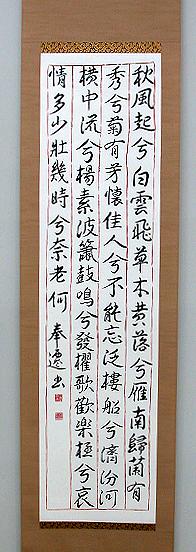 秋風起兮白雲飛草木黃落兮雁南歸蘭有
秀兮菊有芳懷佳人兮不能忘泛樓船兮濟汾河
橫中流兮揚素波簫鼓鳴兮發櫂歌歡樂極兮哀
情多少壯幾時兮奈老何